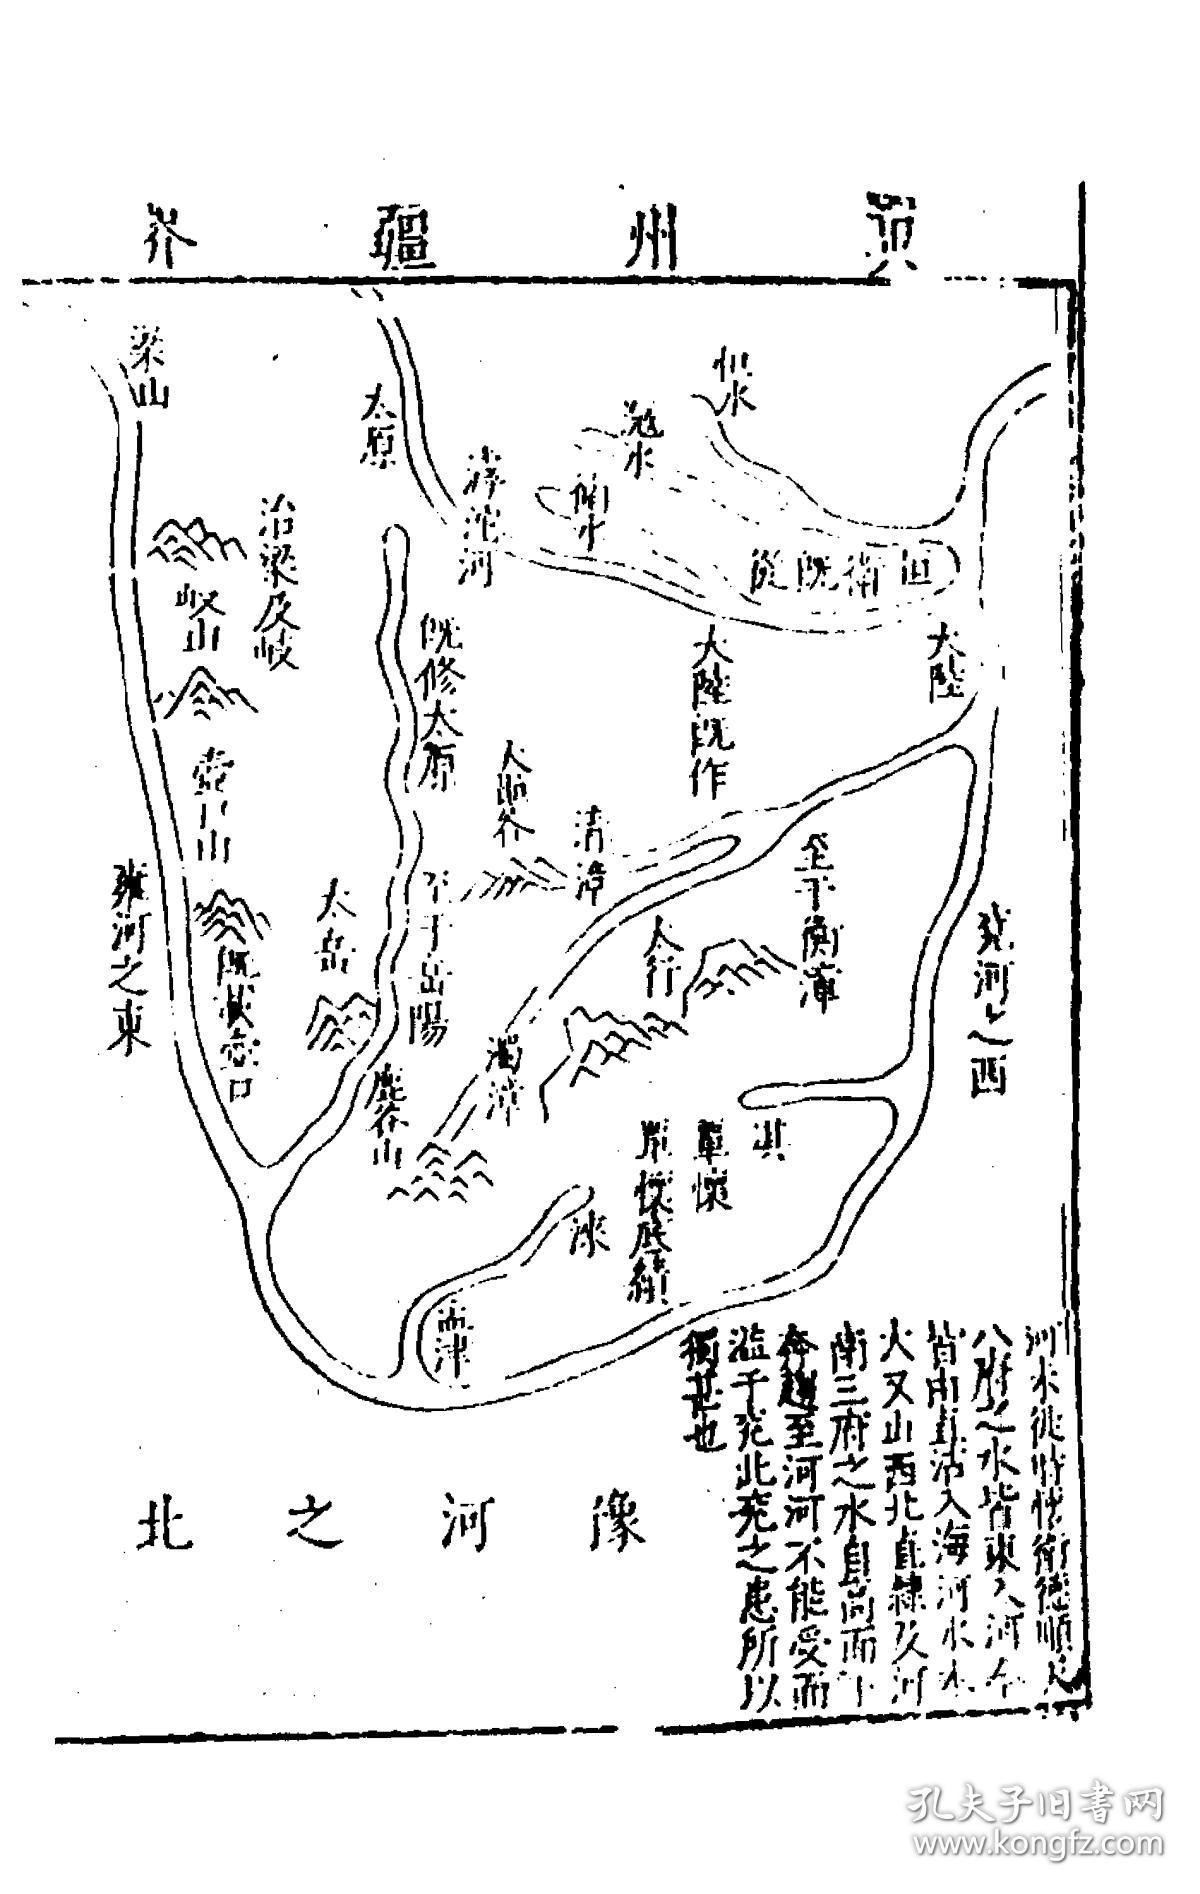 州疆界
恒水
滱水
衛水
恒衛既從
滹沱河
太原
梁山
治梁及岐
岐山
壺口山
既載壺口
雍河之東
既修太原
至于岳陽
太岳
大陸
大陸既作
清漳
至于衡漳
兖河之西
濁漳
淇
覃懷
覃懷厎績
淶
孟津
豫河之北
河水從時恍衛德順大
八府之水皆東入河今
皆由直沽入海河水本
大又山西北直隸及河
南三府之水
奔趨至河河不能受而
溢于兖此兖之患所以
獨甚也
孔夫子旧書网
www.kongfz.com